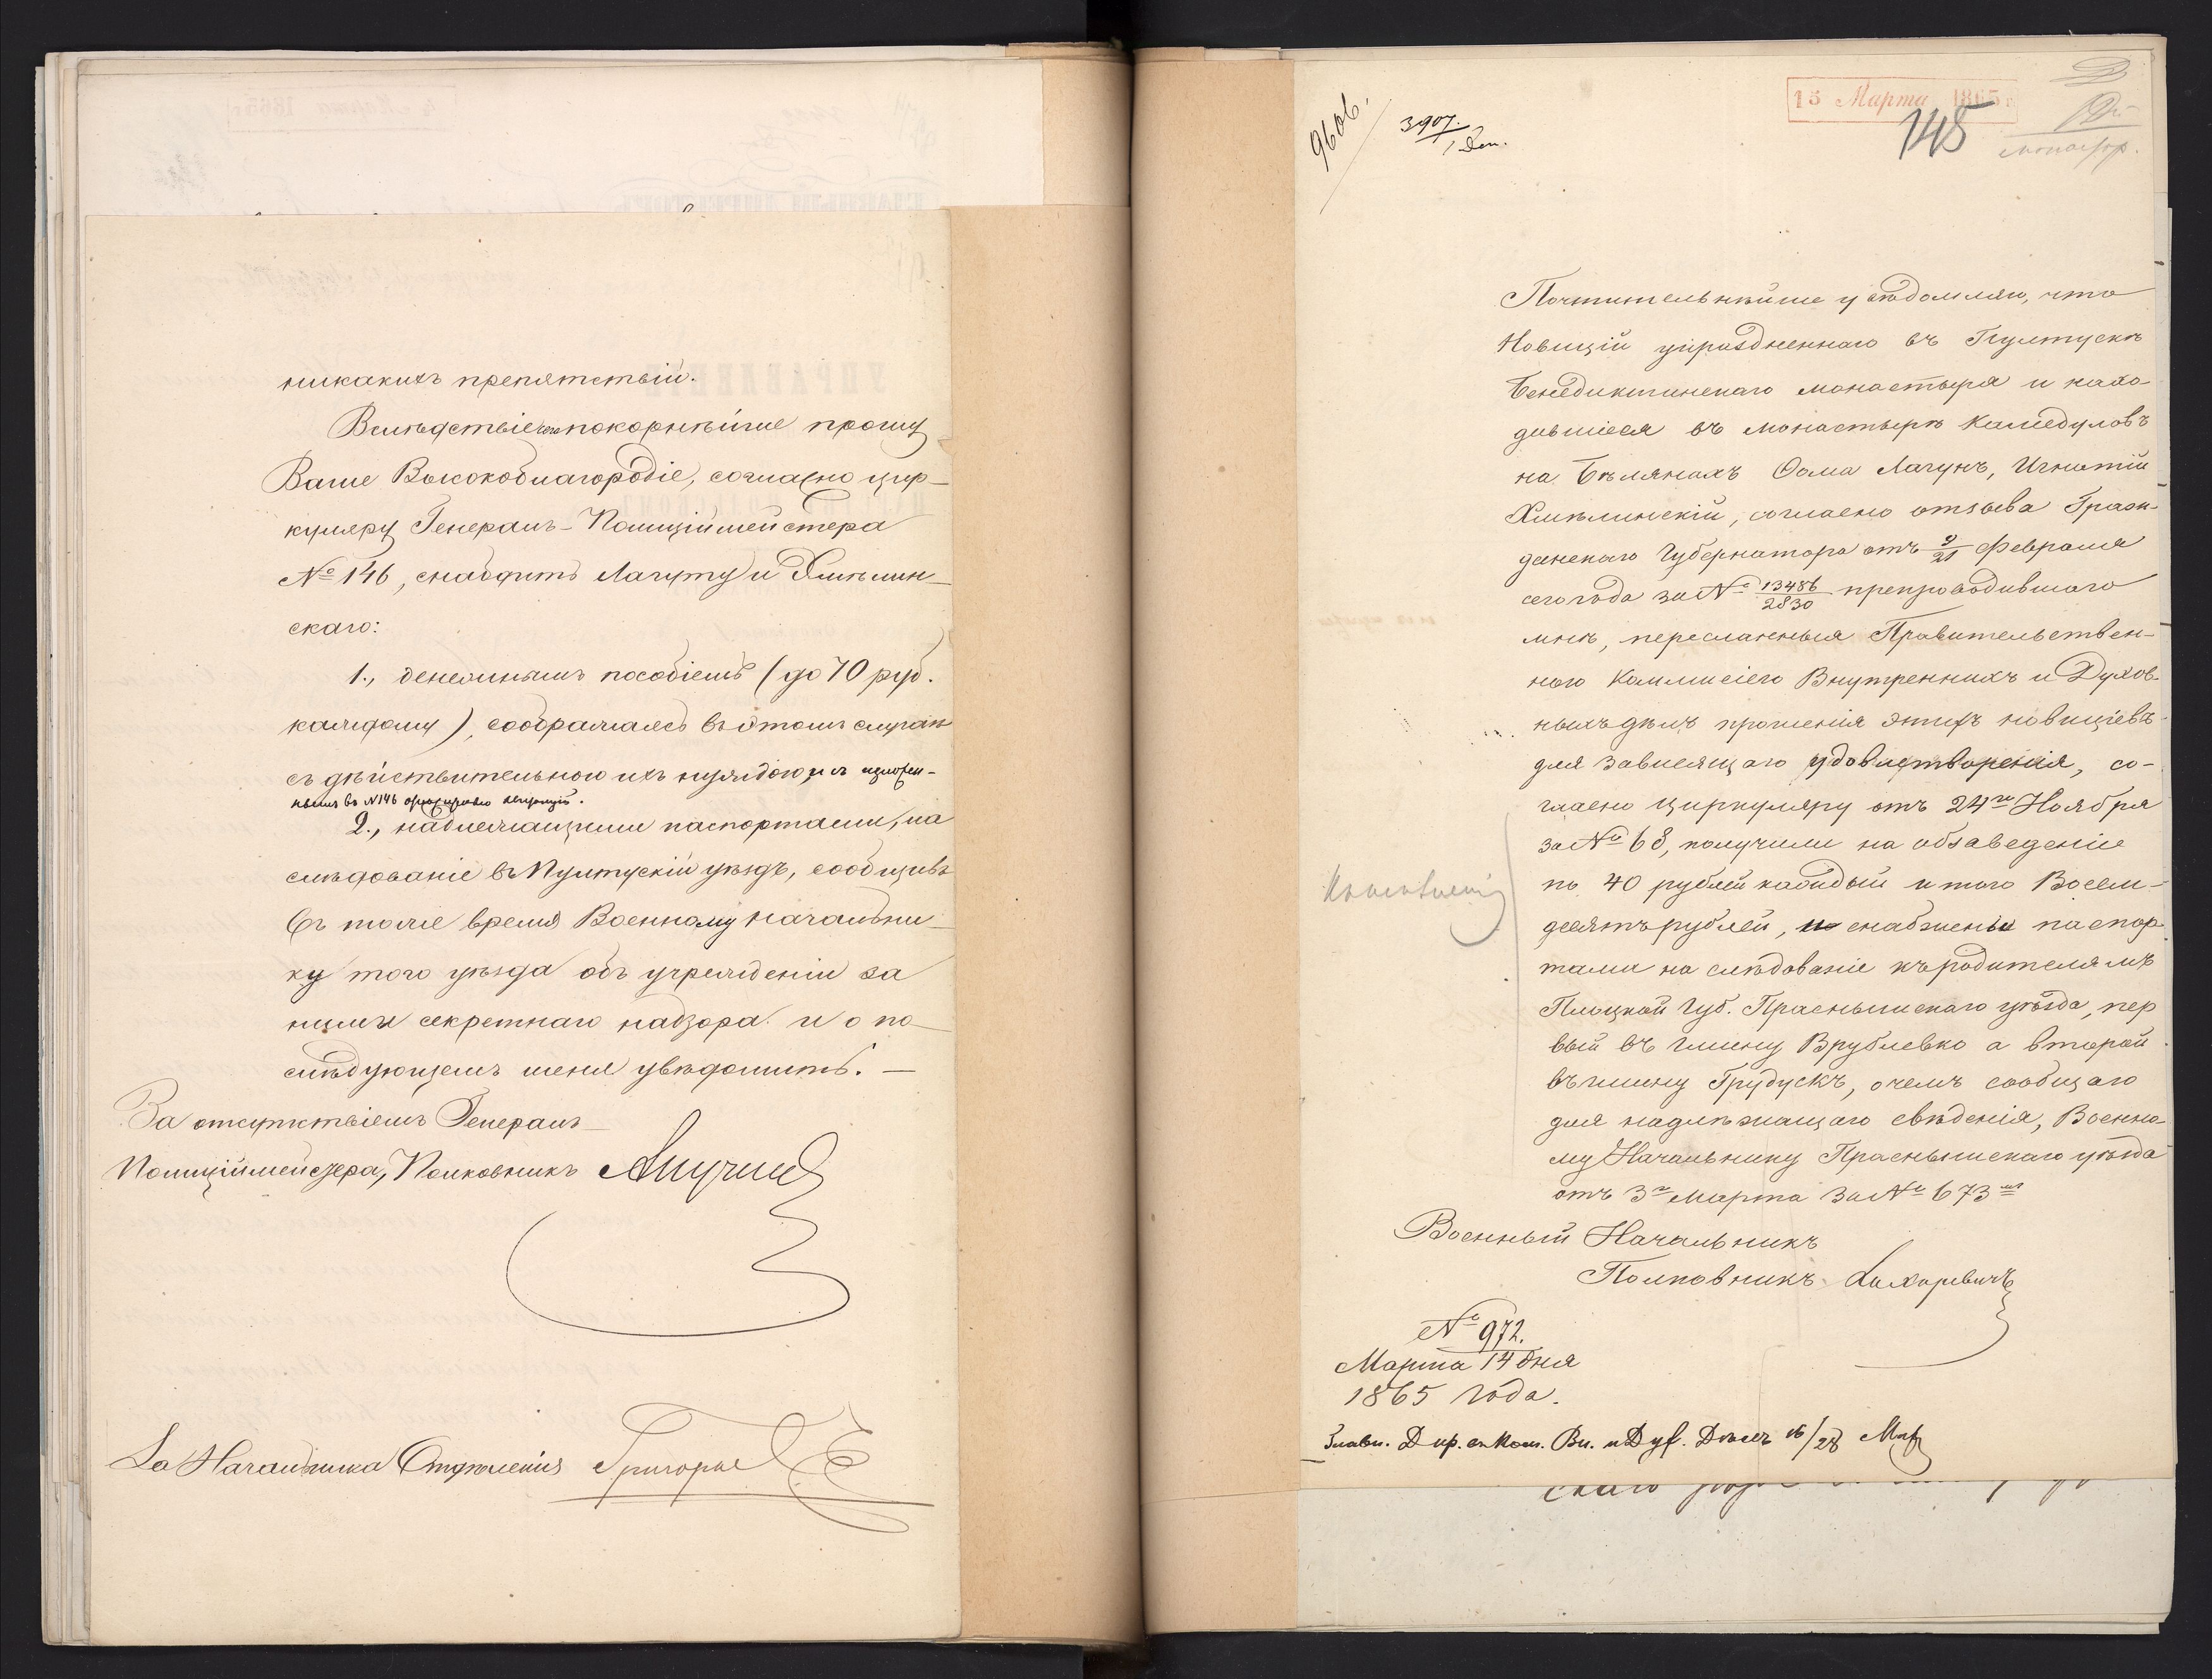 никакихъ препятствій.
Вслѣдствіе чего покорнѣйше прошу
Ваше Высокоблагородіе, согласно цир-
куляру Генералъ-Полиціймейстера
№ 146, снабдить Лагуту и Хмѣлин-
скаго:
1., денежнымъ пособіемъ (до 70 руб.
каждому), соображаясь въ этомъ случаѣ
съ дѣйствительною ихъ нуждою, и съ изложен-
ными въ №146
2., надлежащими паспортами, на
слѣдованіе въ Пултускій уѣздъ, сообщивъ
въ тоже время Военному Начальни-
ку того уѣзда объ учрежденіи за
ними секретнаго надзора и о по-
слѣдующемъ меня увѣдомить. —
За отсутствіемъ Генералъ-
Полиціймейстера, Полковникъ Анучинъ
За Начальника Отдѣленія Григорье
15 Марта 1865 г.
145
9606.
3907.
Почтительнѣйше увѣдомляю, что
Новиціи упраздненнаго въ Пултускѣ
Бенедиктинскаго монастыря и нахо-
дившіеся въ монастырѣ Камедуловъ
на Бѣлянахъ Ѳома Лагунъ, Игнатій
Хмѣлинскій, согласно отзыва Граж-
данскаго Губернатора отъ 9/21 Февраля
сего года за № 13486/2830 препроводившаго
мнѣ, пересланныя Правительствен-
ною Коммисіею Внутреннихъ и Духов-
ныхъ дѣлъ прошенія этихъ новиціевъ
для зависящаго удовлетворенія, со-
гласно циркуляру отъ 24го Ноября
за № 68, получили на обзаведеніе
по 40 рублей каждый итого Восем-
десятъ рублей, и снабжены паспор-
тами на слѣдованіе къ родителямъ
Плоцкой Губ. Праснышскаго уѣзда, пер
вый въ гмину Врублевко а второй
въ гмину Грудускъ, о чемъ сообщаю
для надлѣжащаго свѣденія, Военно-
му Начальнику Праснышскаго уѣзда
отъ 3го Марта за № 673мъ
Военный Начальникъ
Полковникъ
№ 972.
Марта 14 дня
1865 года.
Главн. Дир. Ком. Вн. и Дух. Дѣлъ 16/28 Мар
скаго